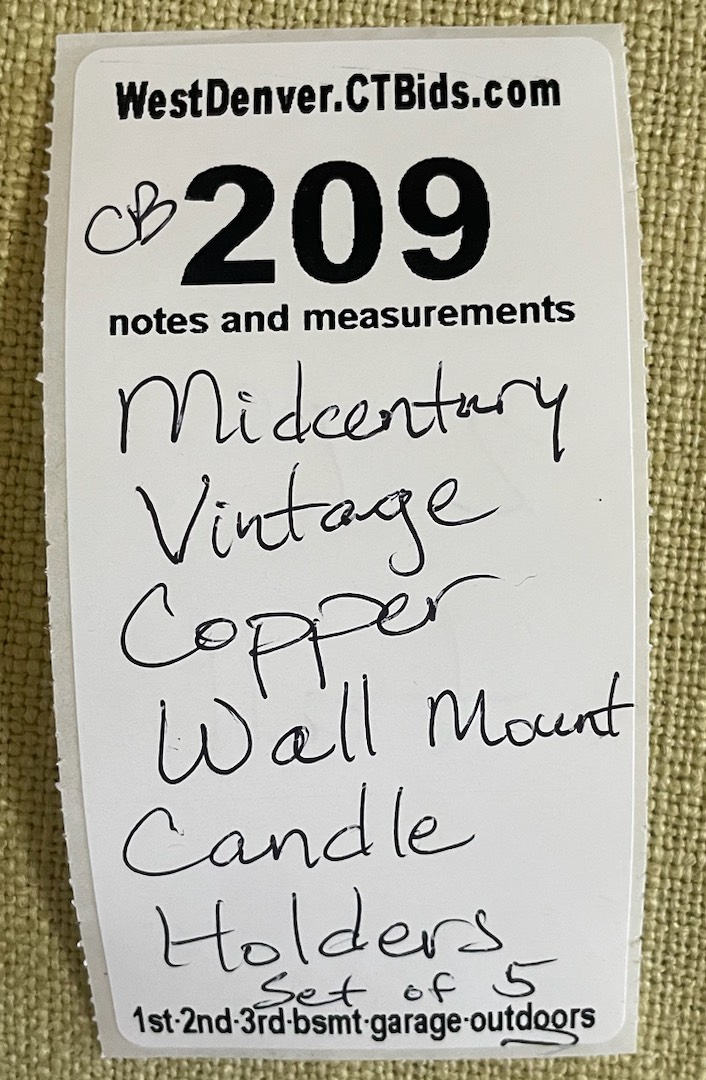 WestDenver.CTBids.com
CB 209
notes and measurements
Midcentury
Vintage
Copper
Wall Mount
Candle
Holders
Set of 5
1st·2nd·3rd·bsmt·garage·outdoors